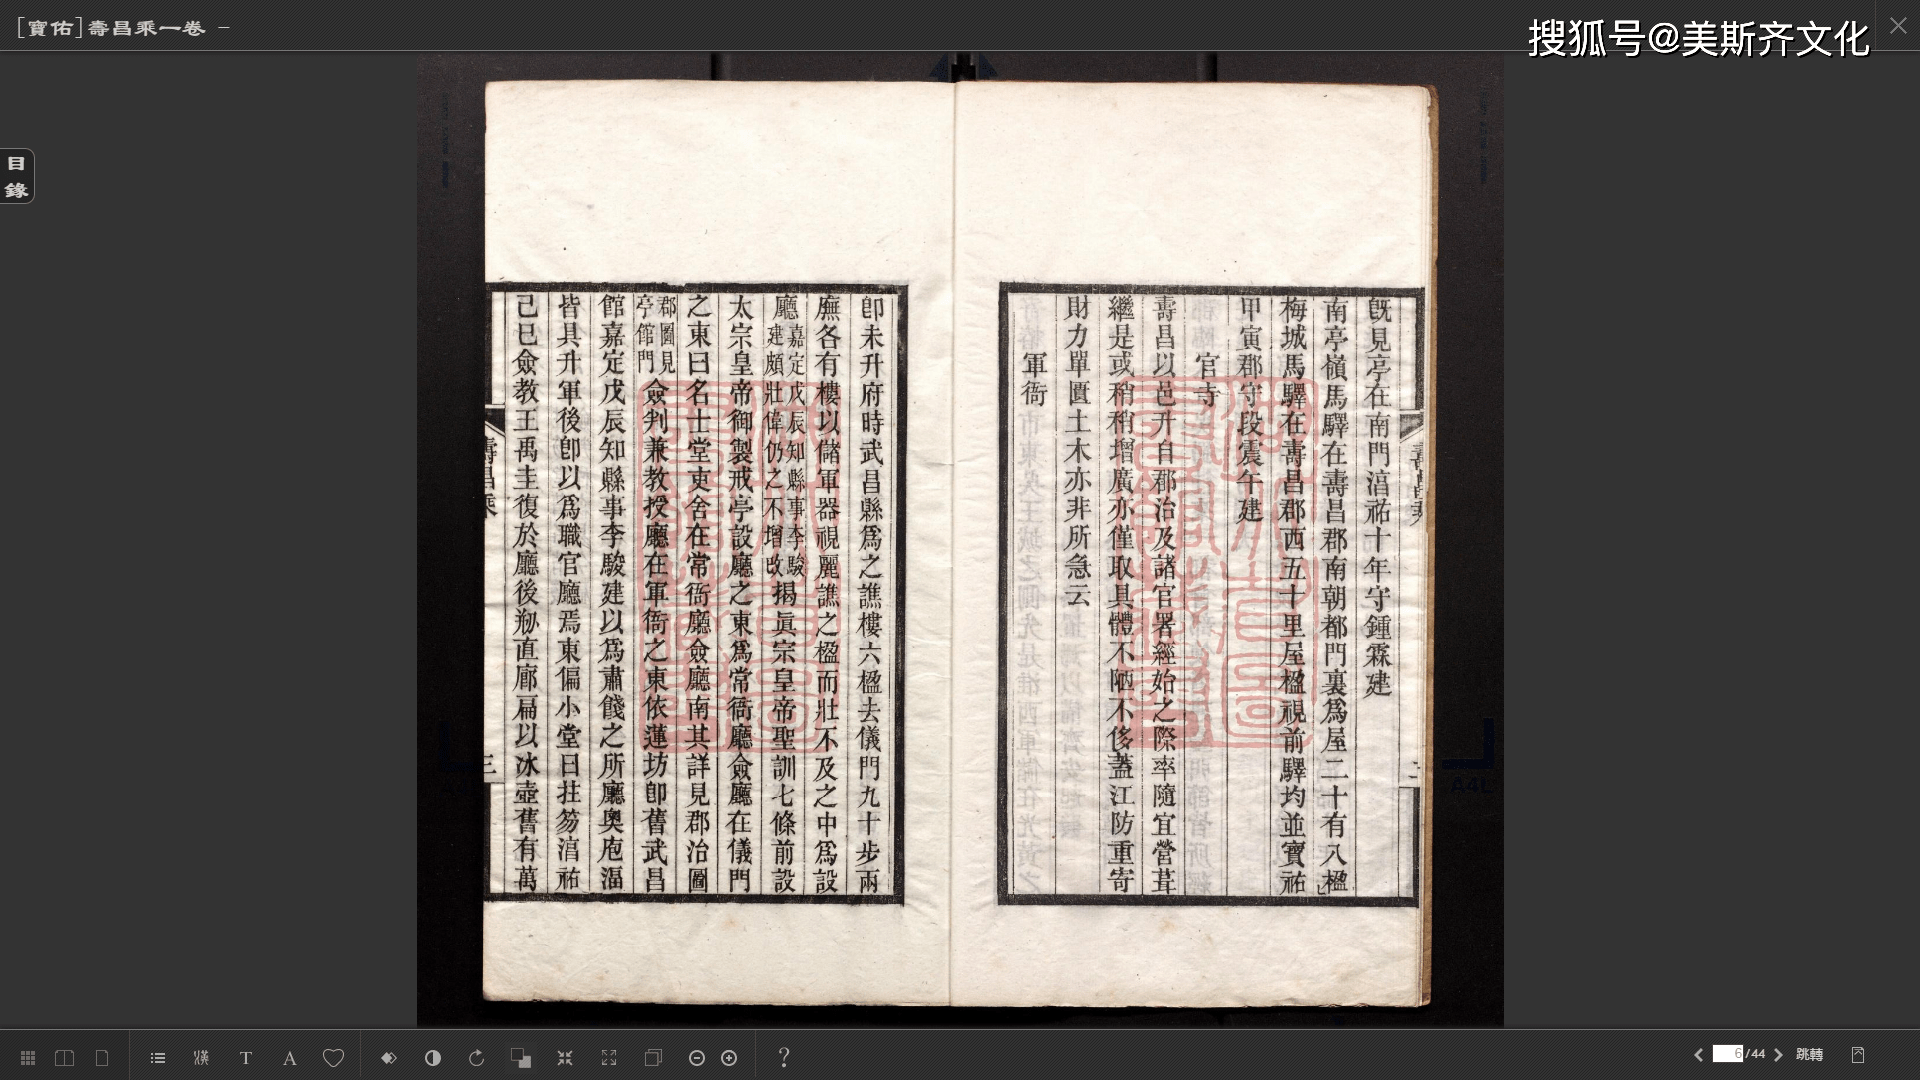 [寶佑]壽昌乘一卷 –
搜狐号@美斯齐文化
目錄
旣見亭在南門湻祐十年守鍾霖建
南亭嶺馬驛在壽昌郡南朝都門裏爲屋二十有八楹
梅城馬驛在壽昌郡西五十里屋楹視前驛均並寶祐
甲寅郡守段震午建
官寺
壽昌以邑升自郡治及諸官署經始之際率隨宜營葺
繼是或稍稍增廣亦僅取具體不陋不侈蓋江防重寄
財力單匱土木亦非所急云
軍衙
卽未升府時武昌縣爲之譙樓六楹去儀門九十步兩
廡各有樓以儲軍器視麗譙之楹而壯不及之中爲設
廳嘉定戊辰知縣事李駿建頗壯偉仍之不增改揭眞宗皇帝聖訓七條前設
太宗皇帝御製戒亭設廳之東爲常衙廳僉廳在儀門
之東曰名士堂吏舍在常衙廳僉廳南其詳見郡治圖
郡圖見亭館門僉判兼教授廳在軍衙之東依蓮坊卽舊武昌
館嘉定戊辰知縣事李駿建以爲肅餞之所廳奧庖湢
皆具升軍後卽以爲職官廳焉東偏小堂曰拄笏湻祐
己巳僉教王禹圭復於廳後剏直廊扁以冰壺舊有萬
壽昌乘
三
T
A
?
6/44
跳轉